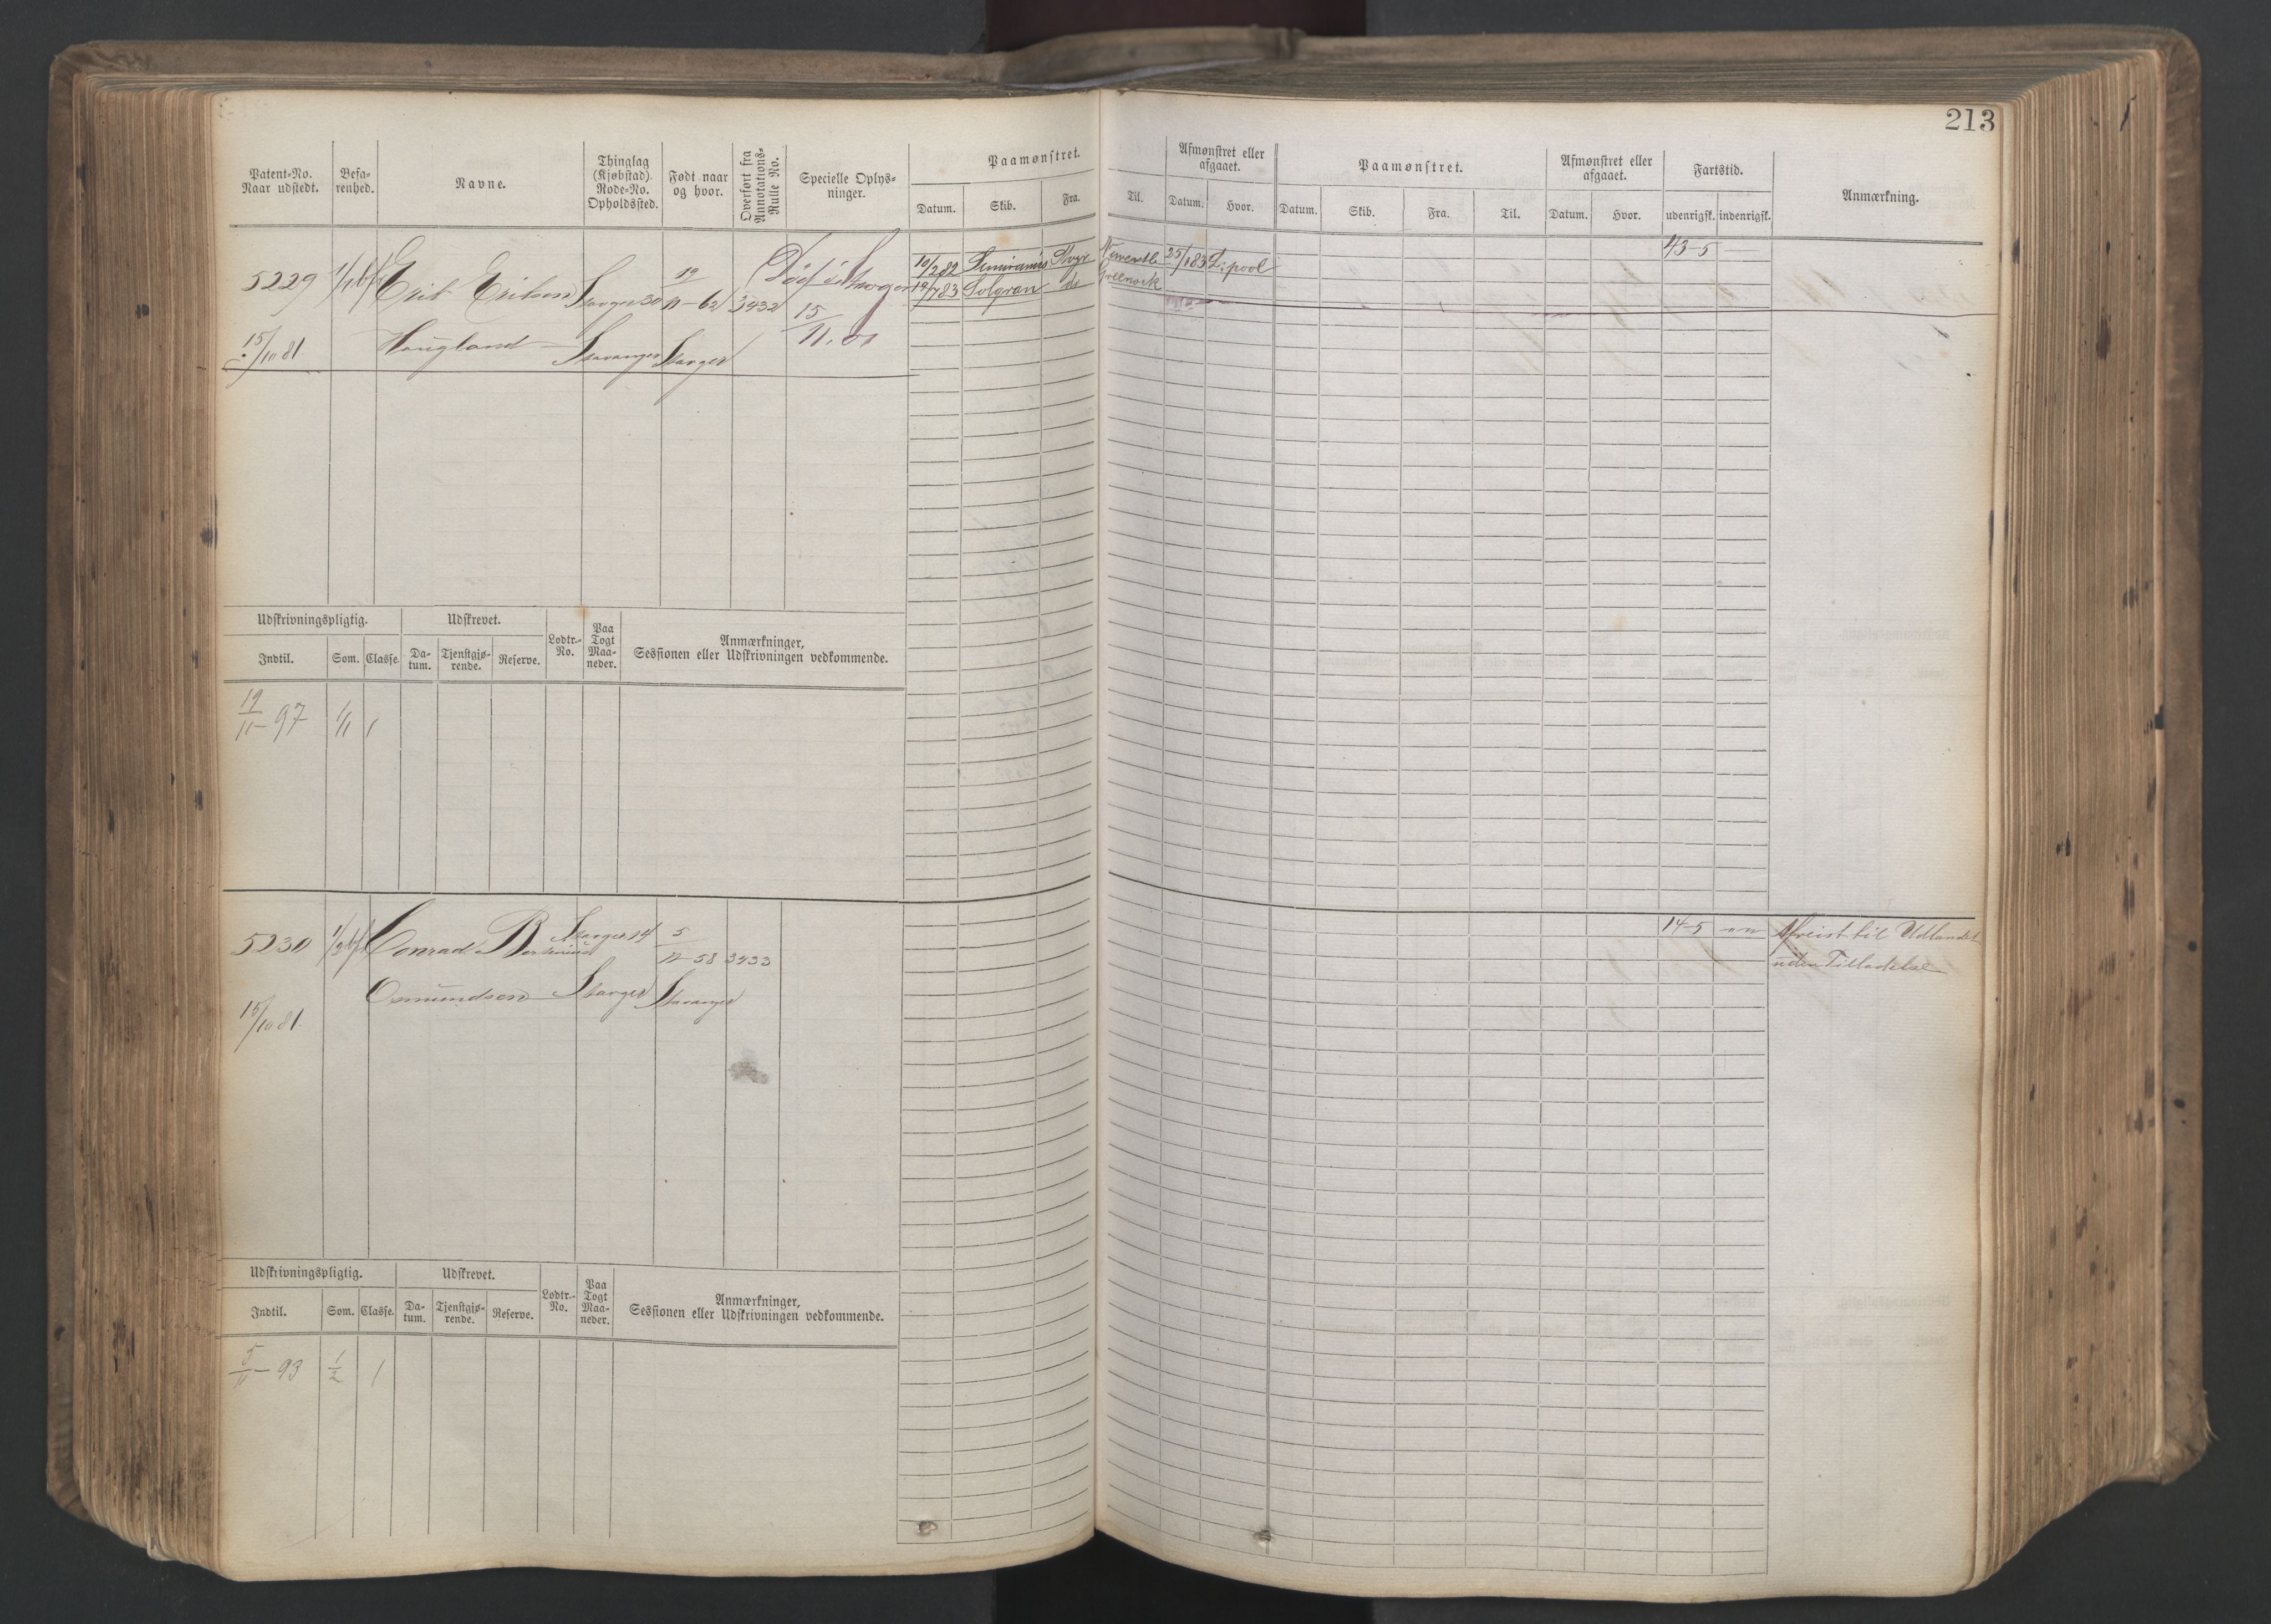 213
Patent-No. Naar udstedt.
Befarenhed.
Navne.
Thinglag (Kjøbstad) Rode-No. Opholdssted.
Født naar og hvor.
Overført fra Annotations-Rulle No.
Specielle Oplysninger.
Paamønstret.
Datum. Skib. Fra. Til.
Afmønstret eller afgaaet.
Datum. Hvor.
Paamønstret.
Datum. Skib. Fra. Til.
Afmønstret eller afgaaet.
Datum. Hvor.
Fartstid.
udenrigsk. indenrigsk.
Anmærkning.
5229 Erik Eriksen Stavger 30 19/11-62 3432 Død i Stavager
15/10 81 Haugland Stavanger Stavger 15/11.01
10/2 82 Semiramis Stvgr Newcastle 25/1 83 L:pool 43-5
19/7 83 Solgran do Greenock
Udskrivningspligtig.
Udskrevet.
Lodtr.-No.
Paa Togt Maaneder.
Anmærkninger,
Sessionen eller Udskrivningen vedkommende.
Indtil. Som. Classe. Datum. Tjenstgjørende. Reserve.
19/11-97 1/1 1
5230 Conrad Stavger 14 5/12-58 3433
15/10 81 Osmundsen Stavger Stavanger
14-5 Afreist til Udlandet
uden Tilladelse
Udskrivningspligtig.
Udskrevet.
Lodtr.-No.
Paa Togt Maaneder.
Anmærkninger,
Sessionen eller Udskrivningen vedkommende.
Indtil. Som. Classe. Datum. Tjenstgjørende. Reserve.
5/11-93 1/2 1